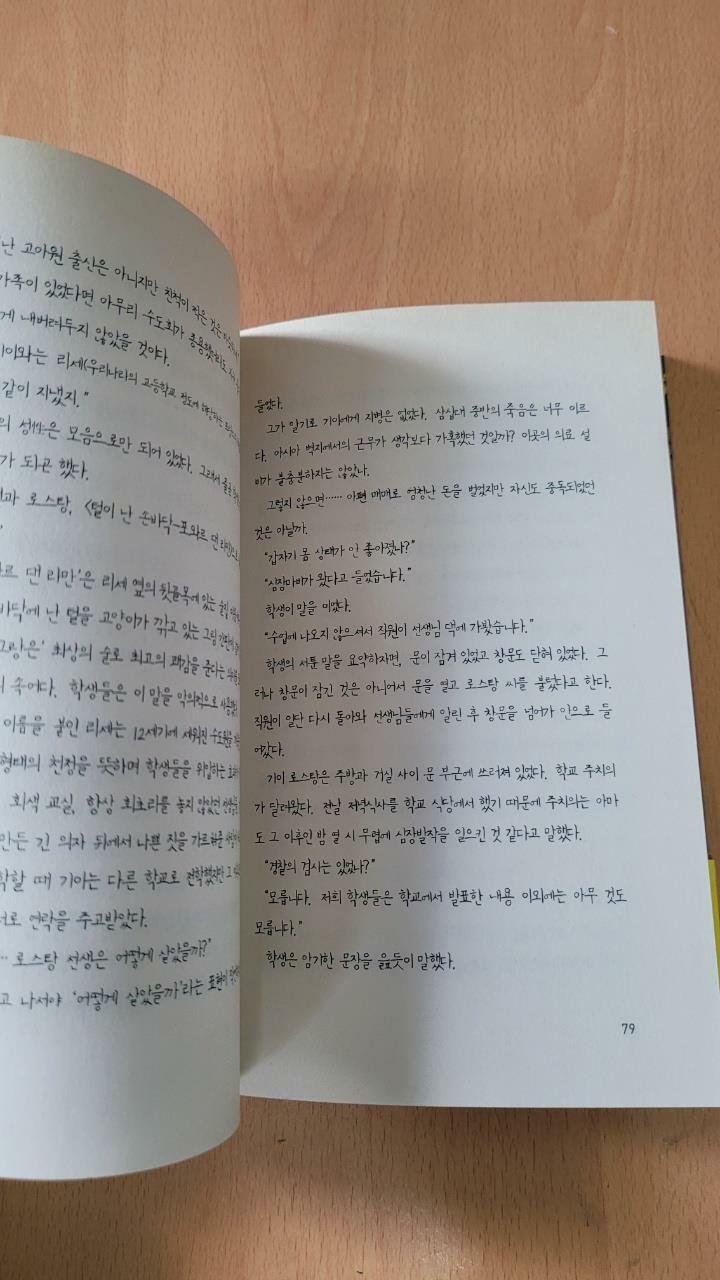 난 고아원 출신은 아니지만 친척이 적은 것은
가족이 있었다면 아무리 수도회가 종용했더라도
게 내버려두지 않았을 것이다.
이와는 리세(우리나라의 고등학교 정도에
같이 지냈지."
의 성性은 모음으로만 되어 있었다. 그래서
가 되곤 했다.
과 로스탕, <털이 난 손바닥-포와르 댄 라만
르 댄 리만'은 리세 옆의 뒷골목에 있는 술집
바닥에 난 털을 고양이가 깎고 있는 그림 간판이
그랑은' 최상의 술로 최고의 쾌감을 준다는
의 속어다. 학생들은 이 말을 악의적으로 사용했
이름을 붙인 리세는 12세기에 세워진 수도원을
형태의 천정을 뜻하며 학생들을 위압하는
회색 교실, 항상 회초리를 놓지 않았던 선생들
만든 긴 의자 뒤에서 나쁜 짓을 가르쳐준
학할 때 기아는 다른 학교로 전학했지만 그
서로 연락을 주고받았다.
… 로스탕 선생은 어떻게 살았을까?"
고 나서야 '어떻게 살았을까'라는 표현이
들었다.
그가 알기로 기아에게 지병은 없었다. 삼십대 중반의 죽음은 너무 이르
다. 아시아 벽지에서의 근무가 생각보다 가혹했던 것일까? 이곳의 의료 설
비가 불충분하지는 않았나.
그렇지 않으면…… 아편 매매로 엄청난 돈을 벌었지만 자신도 중독되었던
것은 아닐까.
"갑자기 몸 상태가 안 좋아졌나?"
"심장마비가 왔다고 들었습니다."
학생이 말을 이었다.
"수업에 나오지 않으셔서 직원이 선생님 댁에 가봤습니다."
학생의 서툰 말을 요약하자면, 문이 잠겨 있었고 창문도 닫혀 있었다. 그
러나 창문이 잠긴 것은 아니어서 문을 열고 로스탕 씨를 불렀다고 한다.
직원이 일단 다시 돌아와 선생님들에게 알린 후 창문을 넘어가 안으로 들
어갔다.
기이 로스탕은 주방과 거실 사이 문 부근에 쓰러져 있었다. 학교 주치의
가 달려왔다. 전날 저녁식사를 학교 식당에서 했기 때문에 주치의는 아마
도 그 이후인 밤 열 시 무렵에 심장발작을 일으킨 것 같다고 말했다.
"경찰의 검시는 있었나?"
"모릅니다. 저희 학생들은 학교에서 발표한 내용 이외에는 아무 것도
모릅니다."
학생은 암기한 문장을 읊듯이 말했다.
79